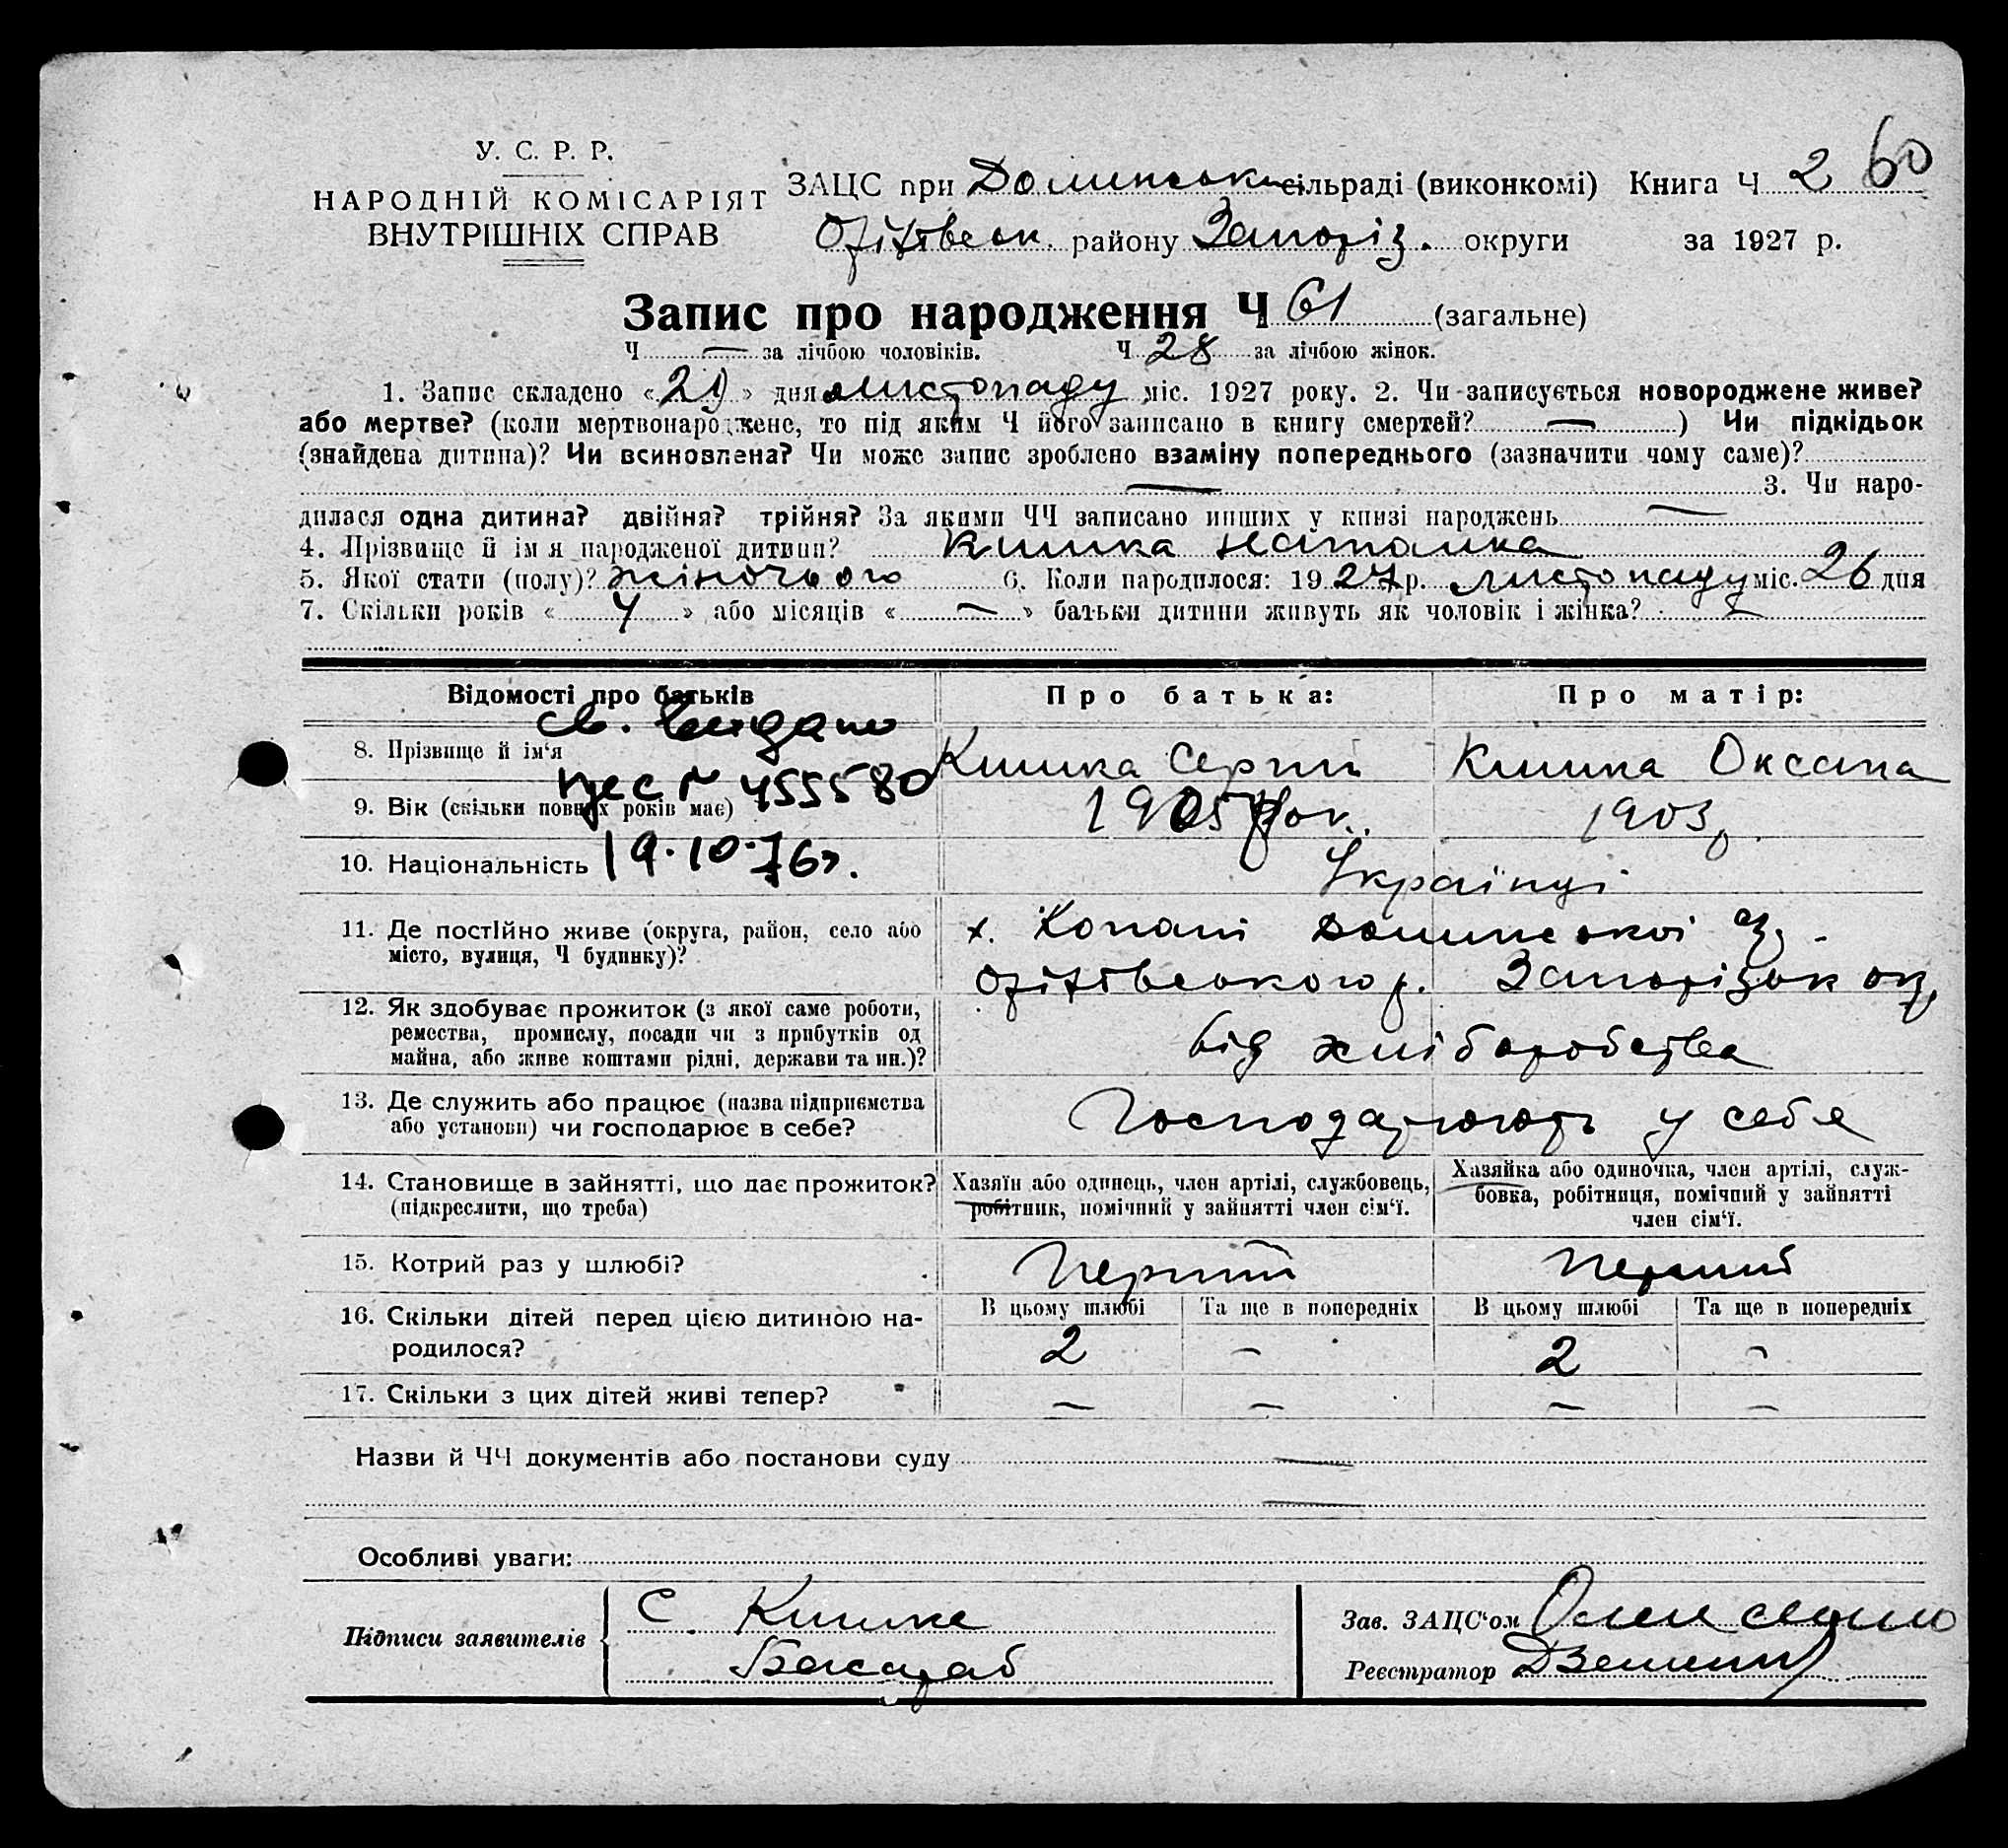 У. С. Р. Р.
НАРОДНІЙ КОМІСАРІЯТ
ВНУТРІШНІХ СПРАВ
60
ЗАЦС при Долинській сільраді (виконкомі) Книга Ч 2
Оріхівськ. району Запоріз. округи за 1927 р.
Запис про народження Ч 61 (загальне)
Ч — за лічбою чоловіків. Ч 28 за лічбою жінок.
1. Запис складено «29» дня листопаду міс. 1927 року. 2. Чи записується новороджене живе?
або мертве? (коли мертвонароджене, то під яким Ч його записано в книгу смертей? — ) Чи підкідьок
(знайдена дитина)? Чи всиновлена? Чи може запис зроблено взаміну попереднього (зазначити чому саме)?
— 3. Чи наро-
дилася одна дитина? двійня? трійня? За якими ЧЧ записано инших у книзі народжень —
4. Прізвище й ім'я народженої дитини? Кишка Наталка
5. Якої стати (полу)? жіночього 6. Коли народилося: 1927 р. листопаду міс. 26 дня
7. Скільки років « 4 » або місяців « — » батьки дитини живуть як чоловік і жінка? —
Відомості про батьків Про батька: Про матір:
св. видано
8. Прізвище й ім'я Кишка Сергій Кишка Оксана
№ 455580
9. Вік (скільки повних років має) 1905 рок. 1903р
19.10.76г.
10. Національність Українці
11. Де постійно живе (округа, район, село або
місто, вулиця, Ч будинку)?
х. Копані Долинської с/р.
Оріхівського р. Запорізьк окр
12. Як здобуває прожиток (з якої саме роботи,
ремества, промислу, посади чи з прибутків од
майна, або живе коштами рідні, держави та ин.)?
від хліборобства
13. Де служить або працює (назва підприємства
або установи) чи господарює в себе?
Господарюють у себе
14. Становище в зайнятті, що дає прожиток?
(підкреслити, що треба)
Хазяїн або одинець, член артілі, службовець,
робітник, помічний у зайнятті член сім'ї.
Хазяйка або одиночка, член артілі, служ-
бовка, робітниця, помічний у зайнятті
член сім'ї.
15. Котрий раз у шлюбі? Перший Перший
16. Скільки дітей перед цією дитиною на-
родилося?
В цьому шлюбі Та ще в попередніх В цьому шлюбі Та ще в попередніх
2 — 2 —
17. Скільки з цих дітей живі тепер? — — — —
Назви й ЧЧ документів або постанови суду —
—
Особливі уваги:
Підписи заявителів
С. Кишка
Басараб
Зав. ЗАЦС'ом
Реєстратор